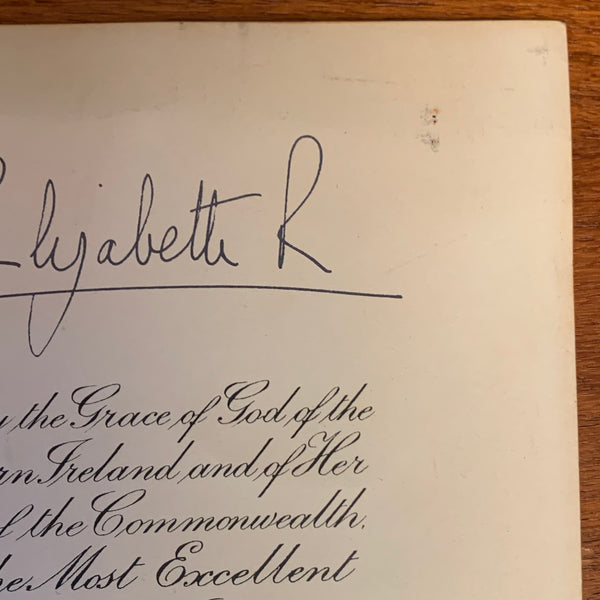 Elizabeth R
the Grace of God, of the
Ireland and of Her
the Commonwealth,
Most Excellent